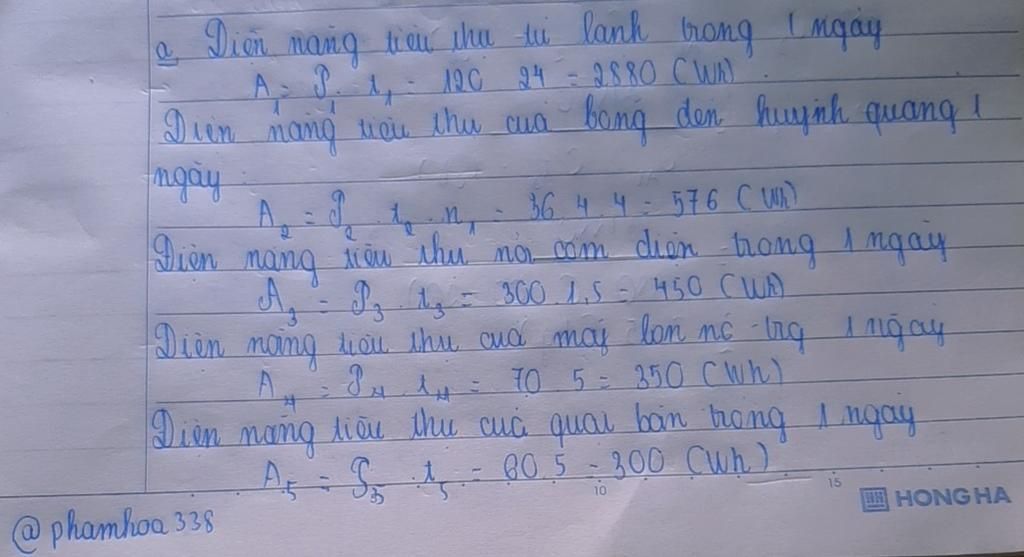 a Điện năng tiêu thụ tủ lạnh trong 1 ngày
A₁ = P₁ . t₁ = 120 24 = 2880 (Wh)
Điện năng tiêu thụ của bóng đèn huỳnh quang 1
ngày
A₂ = P₂ . t₂ . n₁ = 36 4 4 = 576 (Wh)
Điện năng tiêu thụ nồi cơm điện trong 1 ngày
A₃ = P₃ . t₃ = 300 1,5 = 450 (Wh)
Điện năng tiêu thụ của máy bơm nc trg 1 ngày
A₄ = P₄ . t₄ = 70 5 = 350 (Wh)
Điện năng tiêu thụ của quạt bàn trong 1 ngày
A₅ = P₅ . t₅ = 60 5 = 300 (Wh)
10 15
HONG HA
@phamhoa338